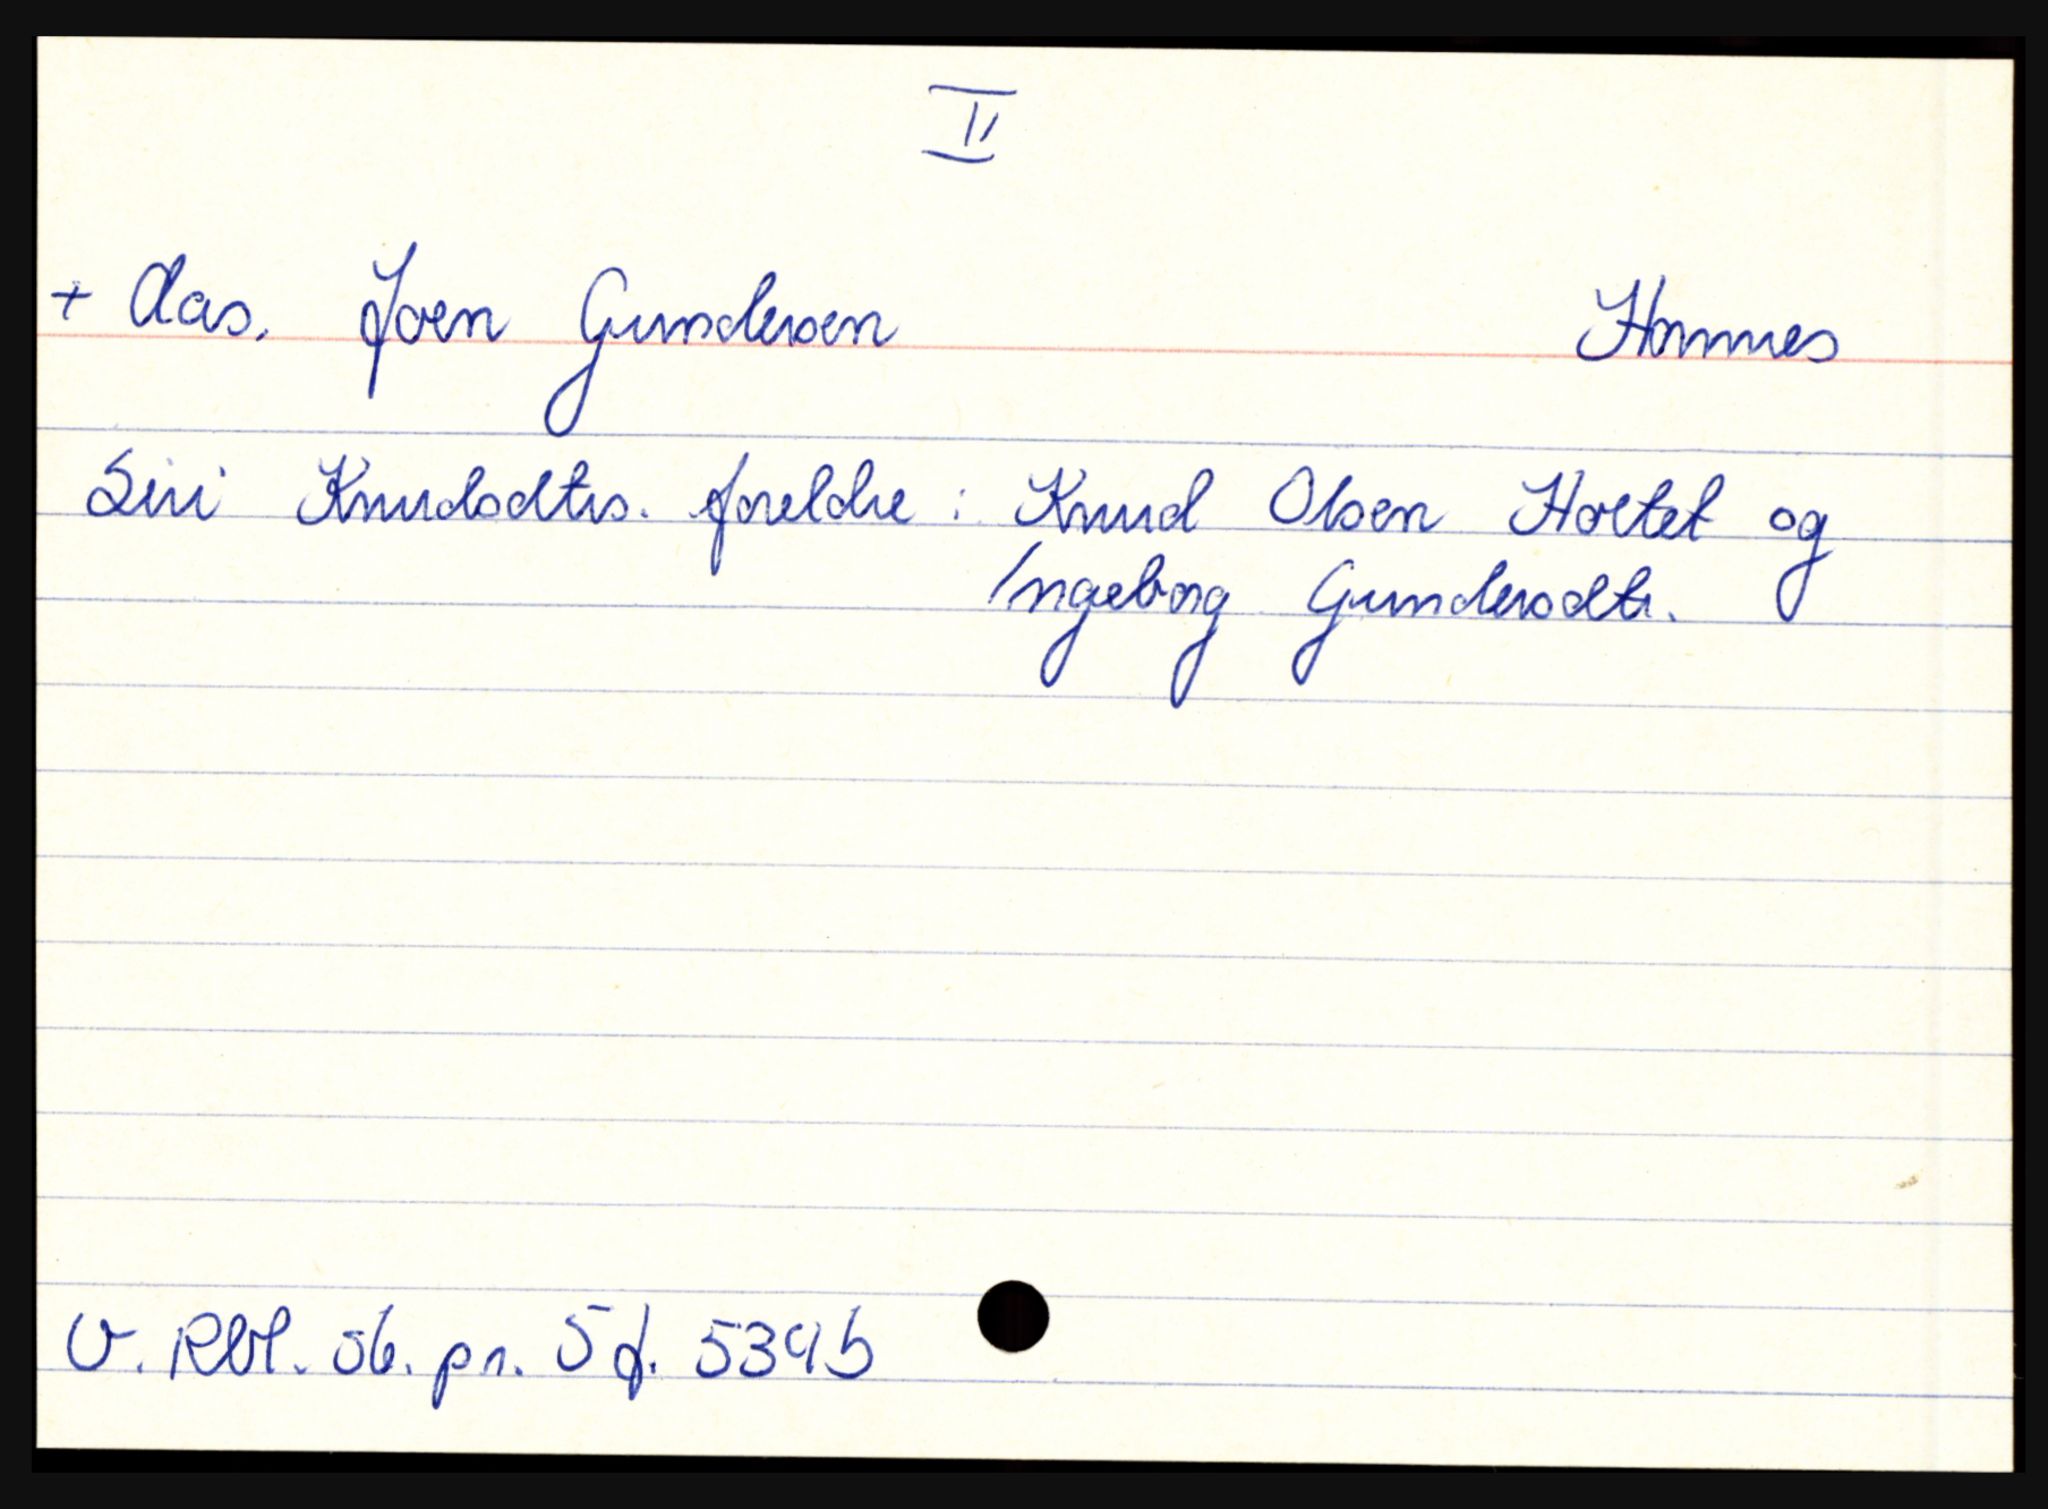 II
+ Aas. Joen Gundersen Hommes
Siri Knudsdtrs. foreldre : Knud Olsen Hortet og
Ingeborg Gundersdtr.
V. Rbl. sk. pr. 5 f. 539b